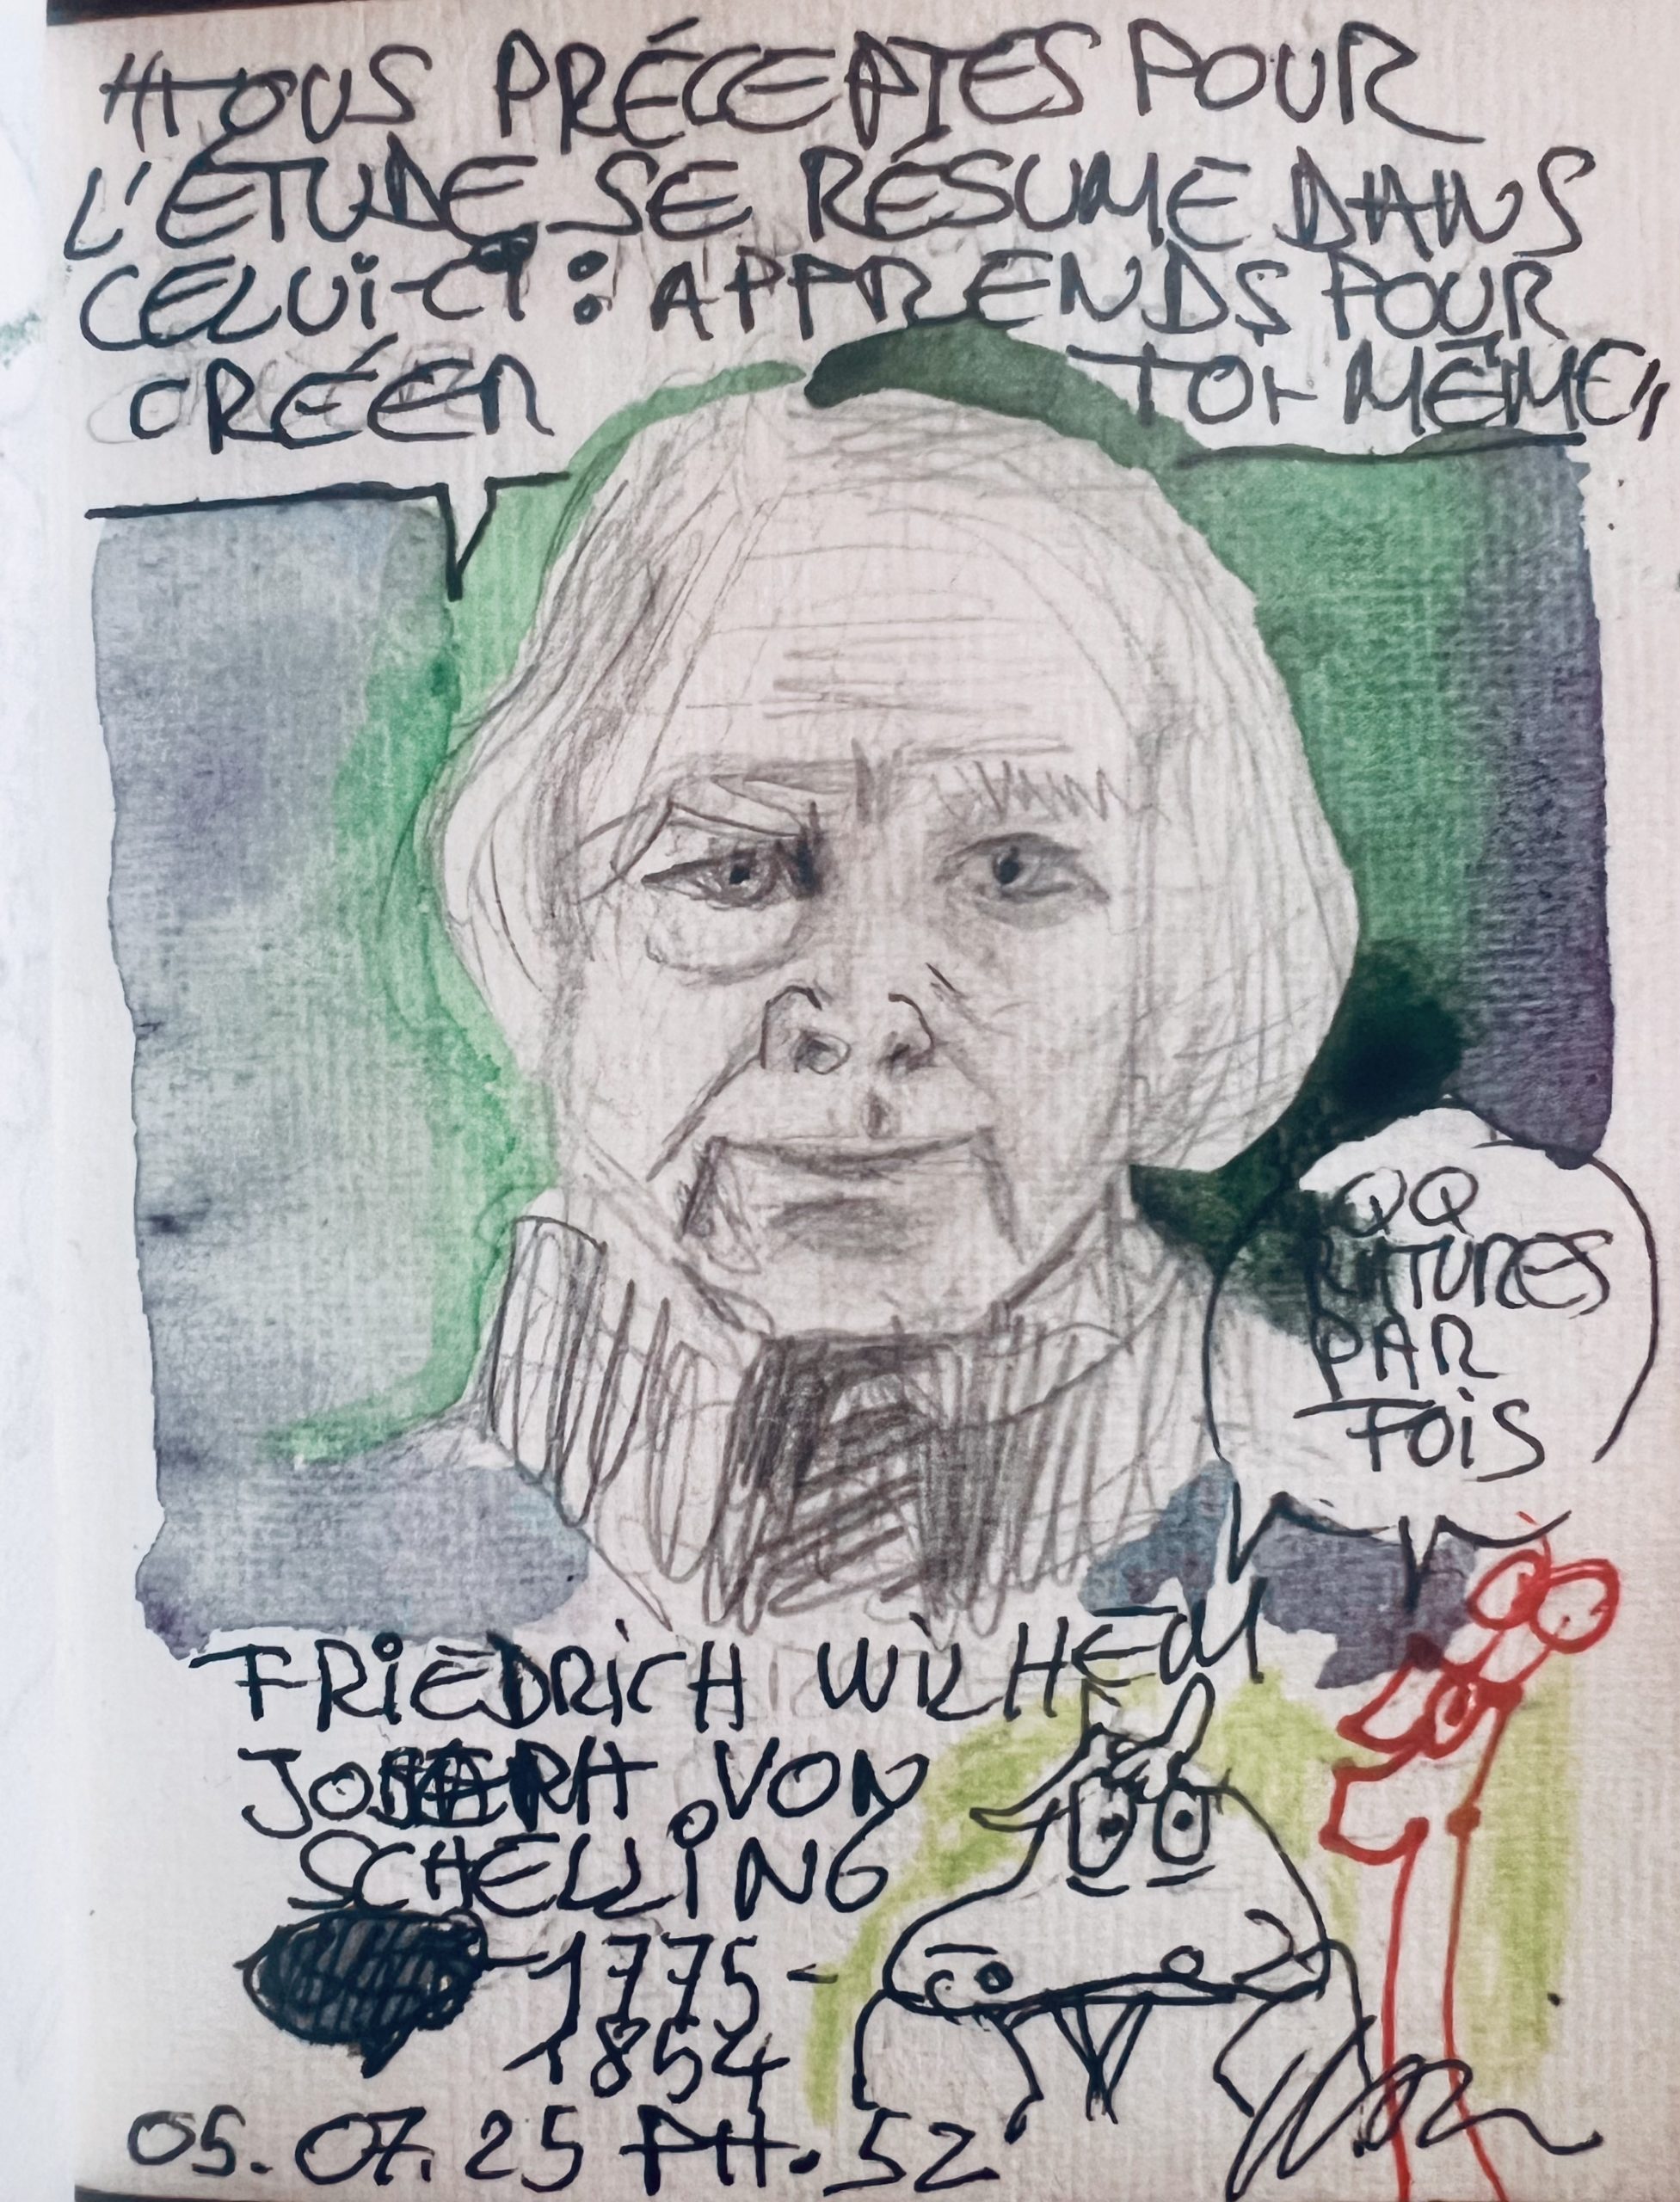 "TOUS PRÉCEPTES POUR
L'ÉTUDE SE RÉSUME DANS
CELUI-CI : APPRENDS POUR
CRÉER TOI-MÊME"
QQ
RATURES
PAR
FOIS
FRIEDRICH WILHEM
JOSEPH VON
SCHELLING
1775-
1854
05.07.25 PH.52